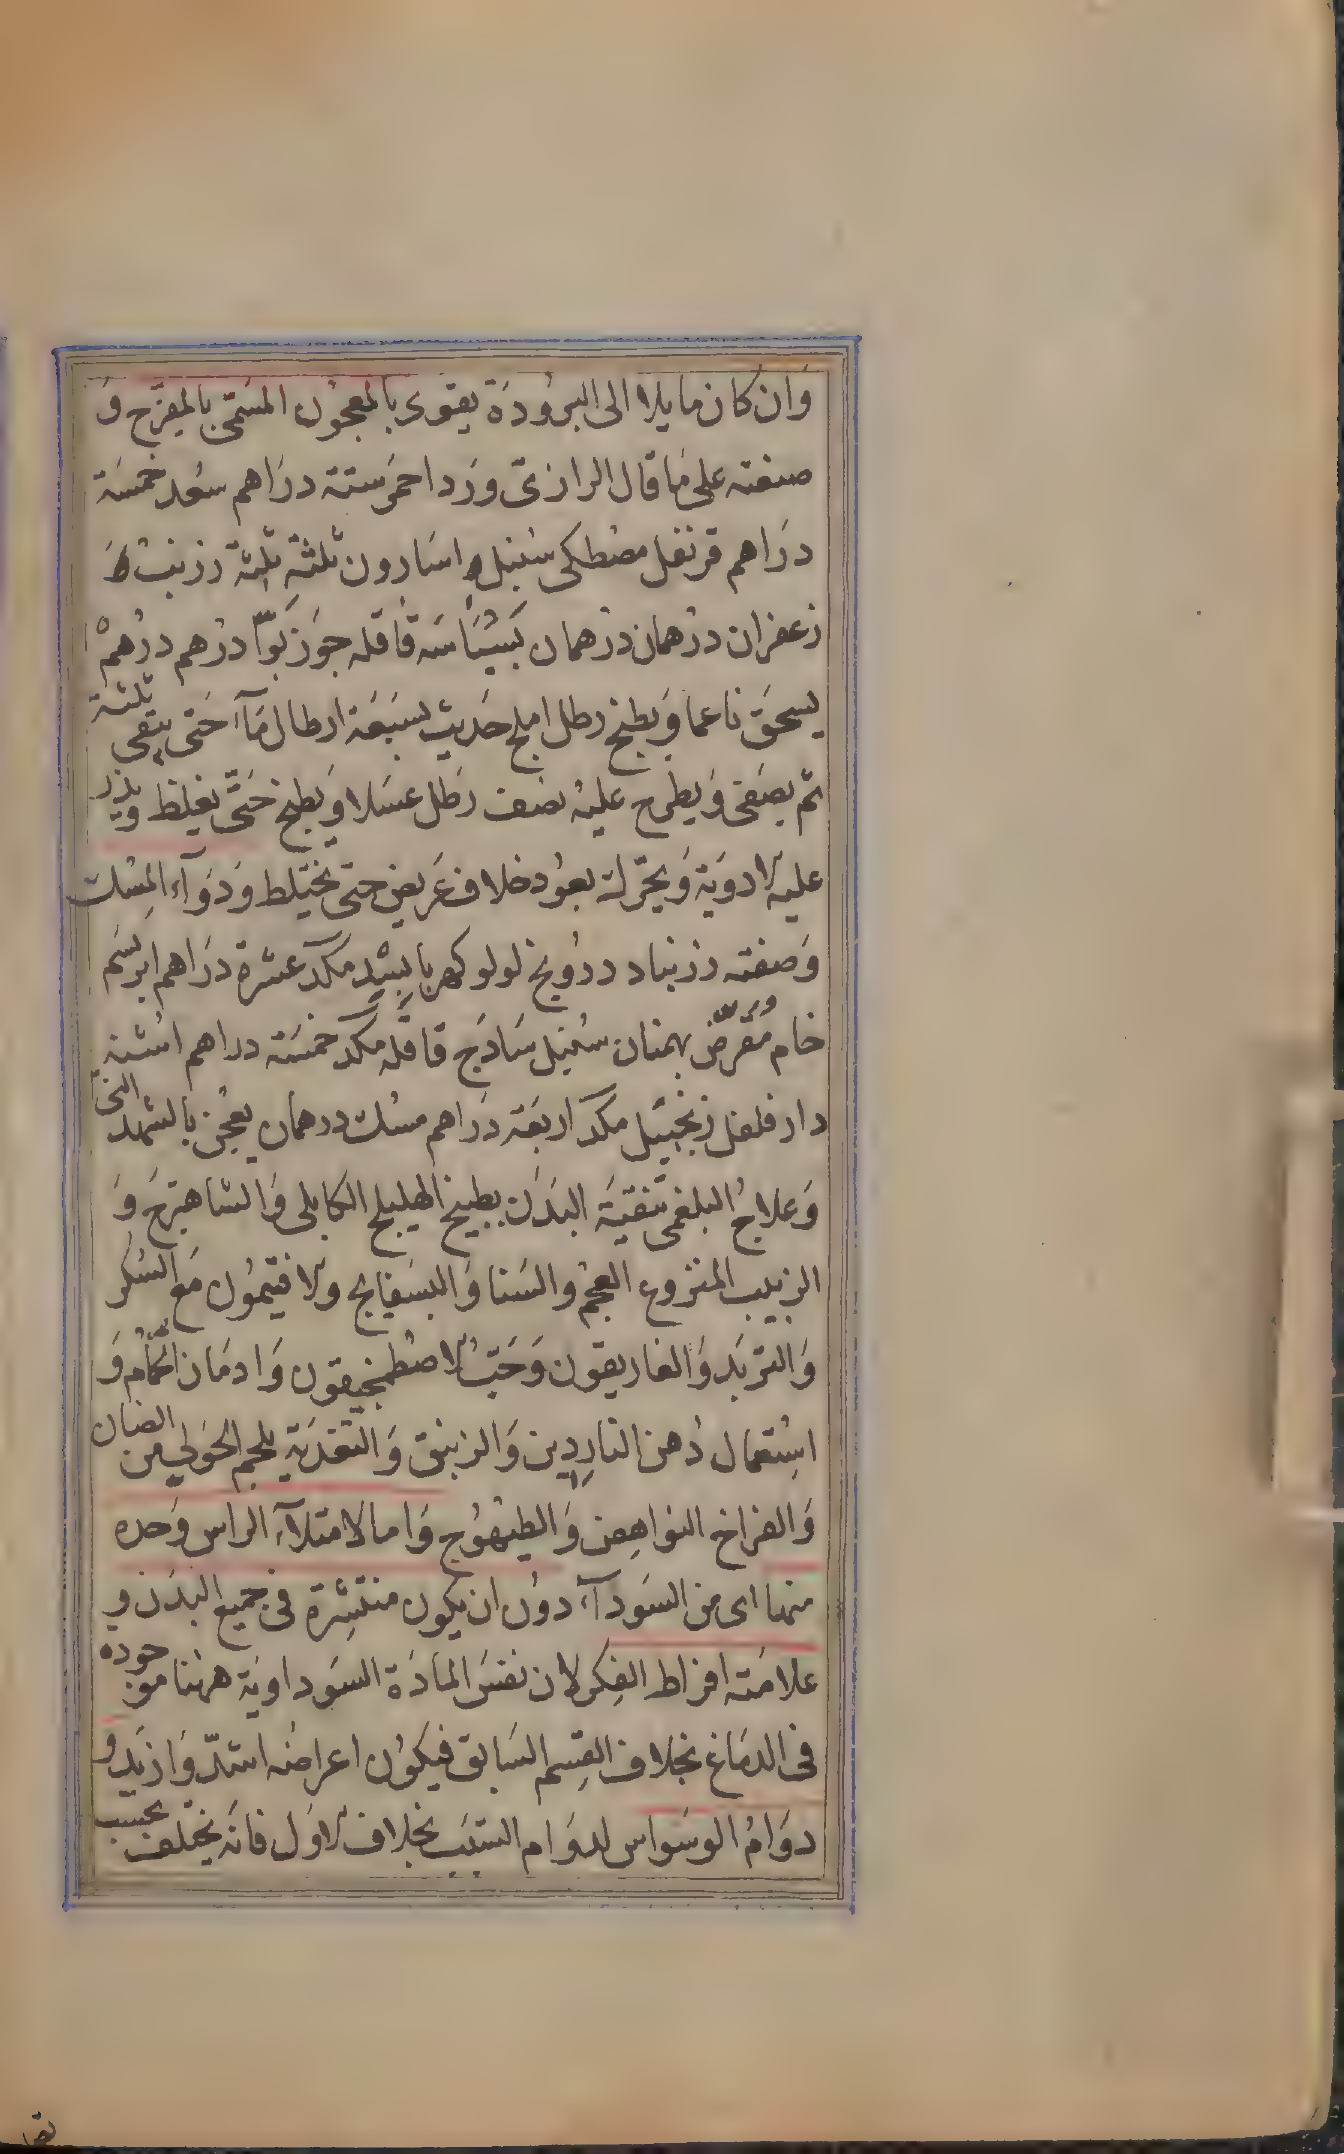 وَان كان مايلا الى البرُودَة يقوى بالمعجوُن المسَمّى بالمفرّح وَ
صنعته على مَا قال الرازىّ وَرَد احمَر ستة درَاهم سعُد خمسَة
درَاهم قرنفل مصطكى سُنبل و اسَارون ثلثة ثلثة زرنبُ
زعفران درُهمان درُهمان بَسْبَاسَة قاقله جوَز بَوّا درُهم درُهمْ
يسحَق ناعما وَيطبخ رطل املج حَديث بسَبعَة ارطال مَآء حَتى يبقى ثلثة
ثم يصَفى وَيطرح عليهْ نصَف رَطل عسَلا وَيطبخ حَتَّى يغلظ ويذر
عليه الادوَية وَيحرّك بعوُد خلاف عَريض حتى يختلط وَدَوَآء المِسْك
وَصفته زرنباد درُونج لولو كهربا بسَّد مكد عشرة درَاهم ابريسَم
خام مُقرّض بهمنان سُنبل سَاذَج قاقله مكد خمسَة دراهم اشنه
دار فلفل زنجبَيل مكد اربَعة درَاهم مسُك درهمان يعُجن بالشهد
وَعلاجُ البلغمى تنقيَة البَدَن بطبيخ الهليلج الكابلى وَالشاهترَج وَ
الزبيب المنزوع العجمُ والسَنا وَالبسَفايج والافتيمُون مَع السُكر
وَالترُبَد وَالغاريقون وَحَبّ الاصُطمخيقون وَادمَان الحمّام وَ
استُعمال دُهن النارِدِين وَالزنبق وَالتغذيَة بلحم الحَولى من الضان
وَالفراخ النواهِض وَالطيْهوُج وَاما لامتلآء الراس وَحده
منها اى من السَودآء دوُن ان يكون منتشِرة فى جميع البَدَن و
علامَته افراط الفِكر لان نفسَ المادَة السَوداويَة ههُنا موجوده
فى الدمَاغ بخلاف القِسم السَابق فيكوُن اعراضُه اشدّ وَازيَد و
دوَامُ الوسَواس لدوَام السَبَب بخلاف الاوَل فانَه يختلف بحسب